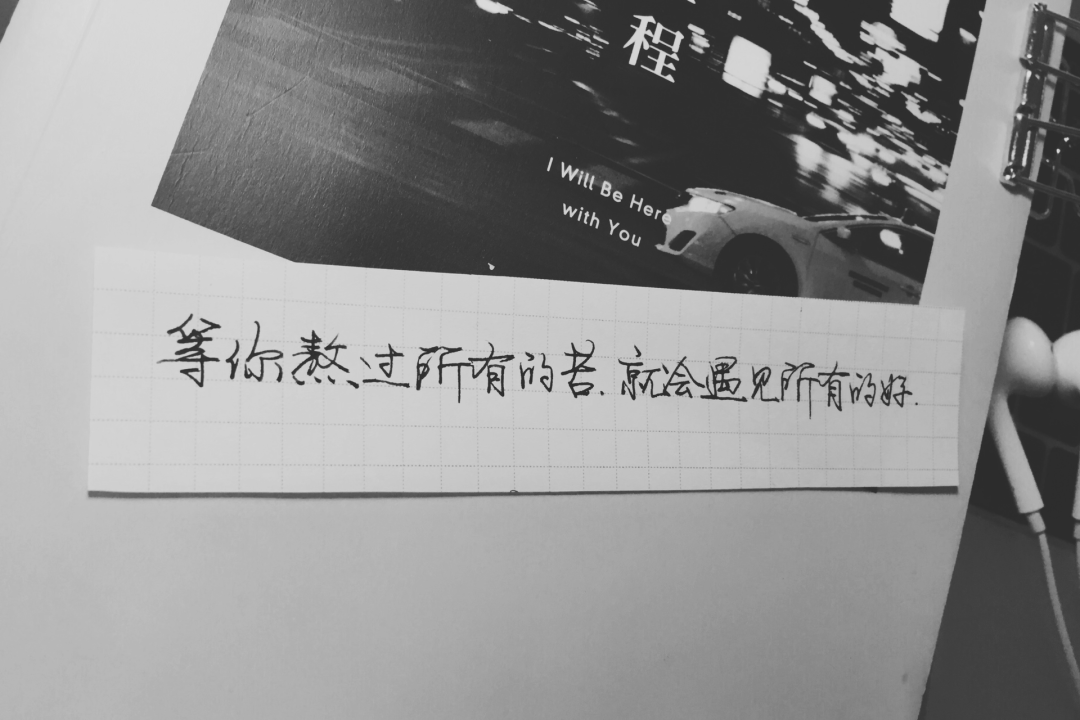 程
I Will Be Here
with You
等你熬过所有的苦.就会遇见所有的好.